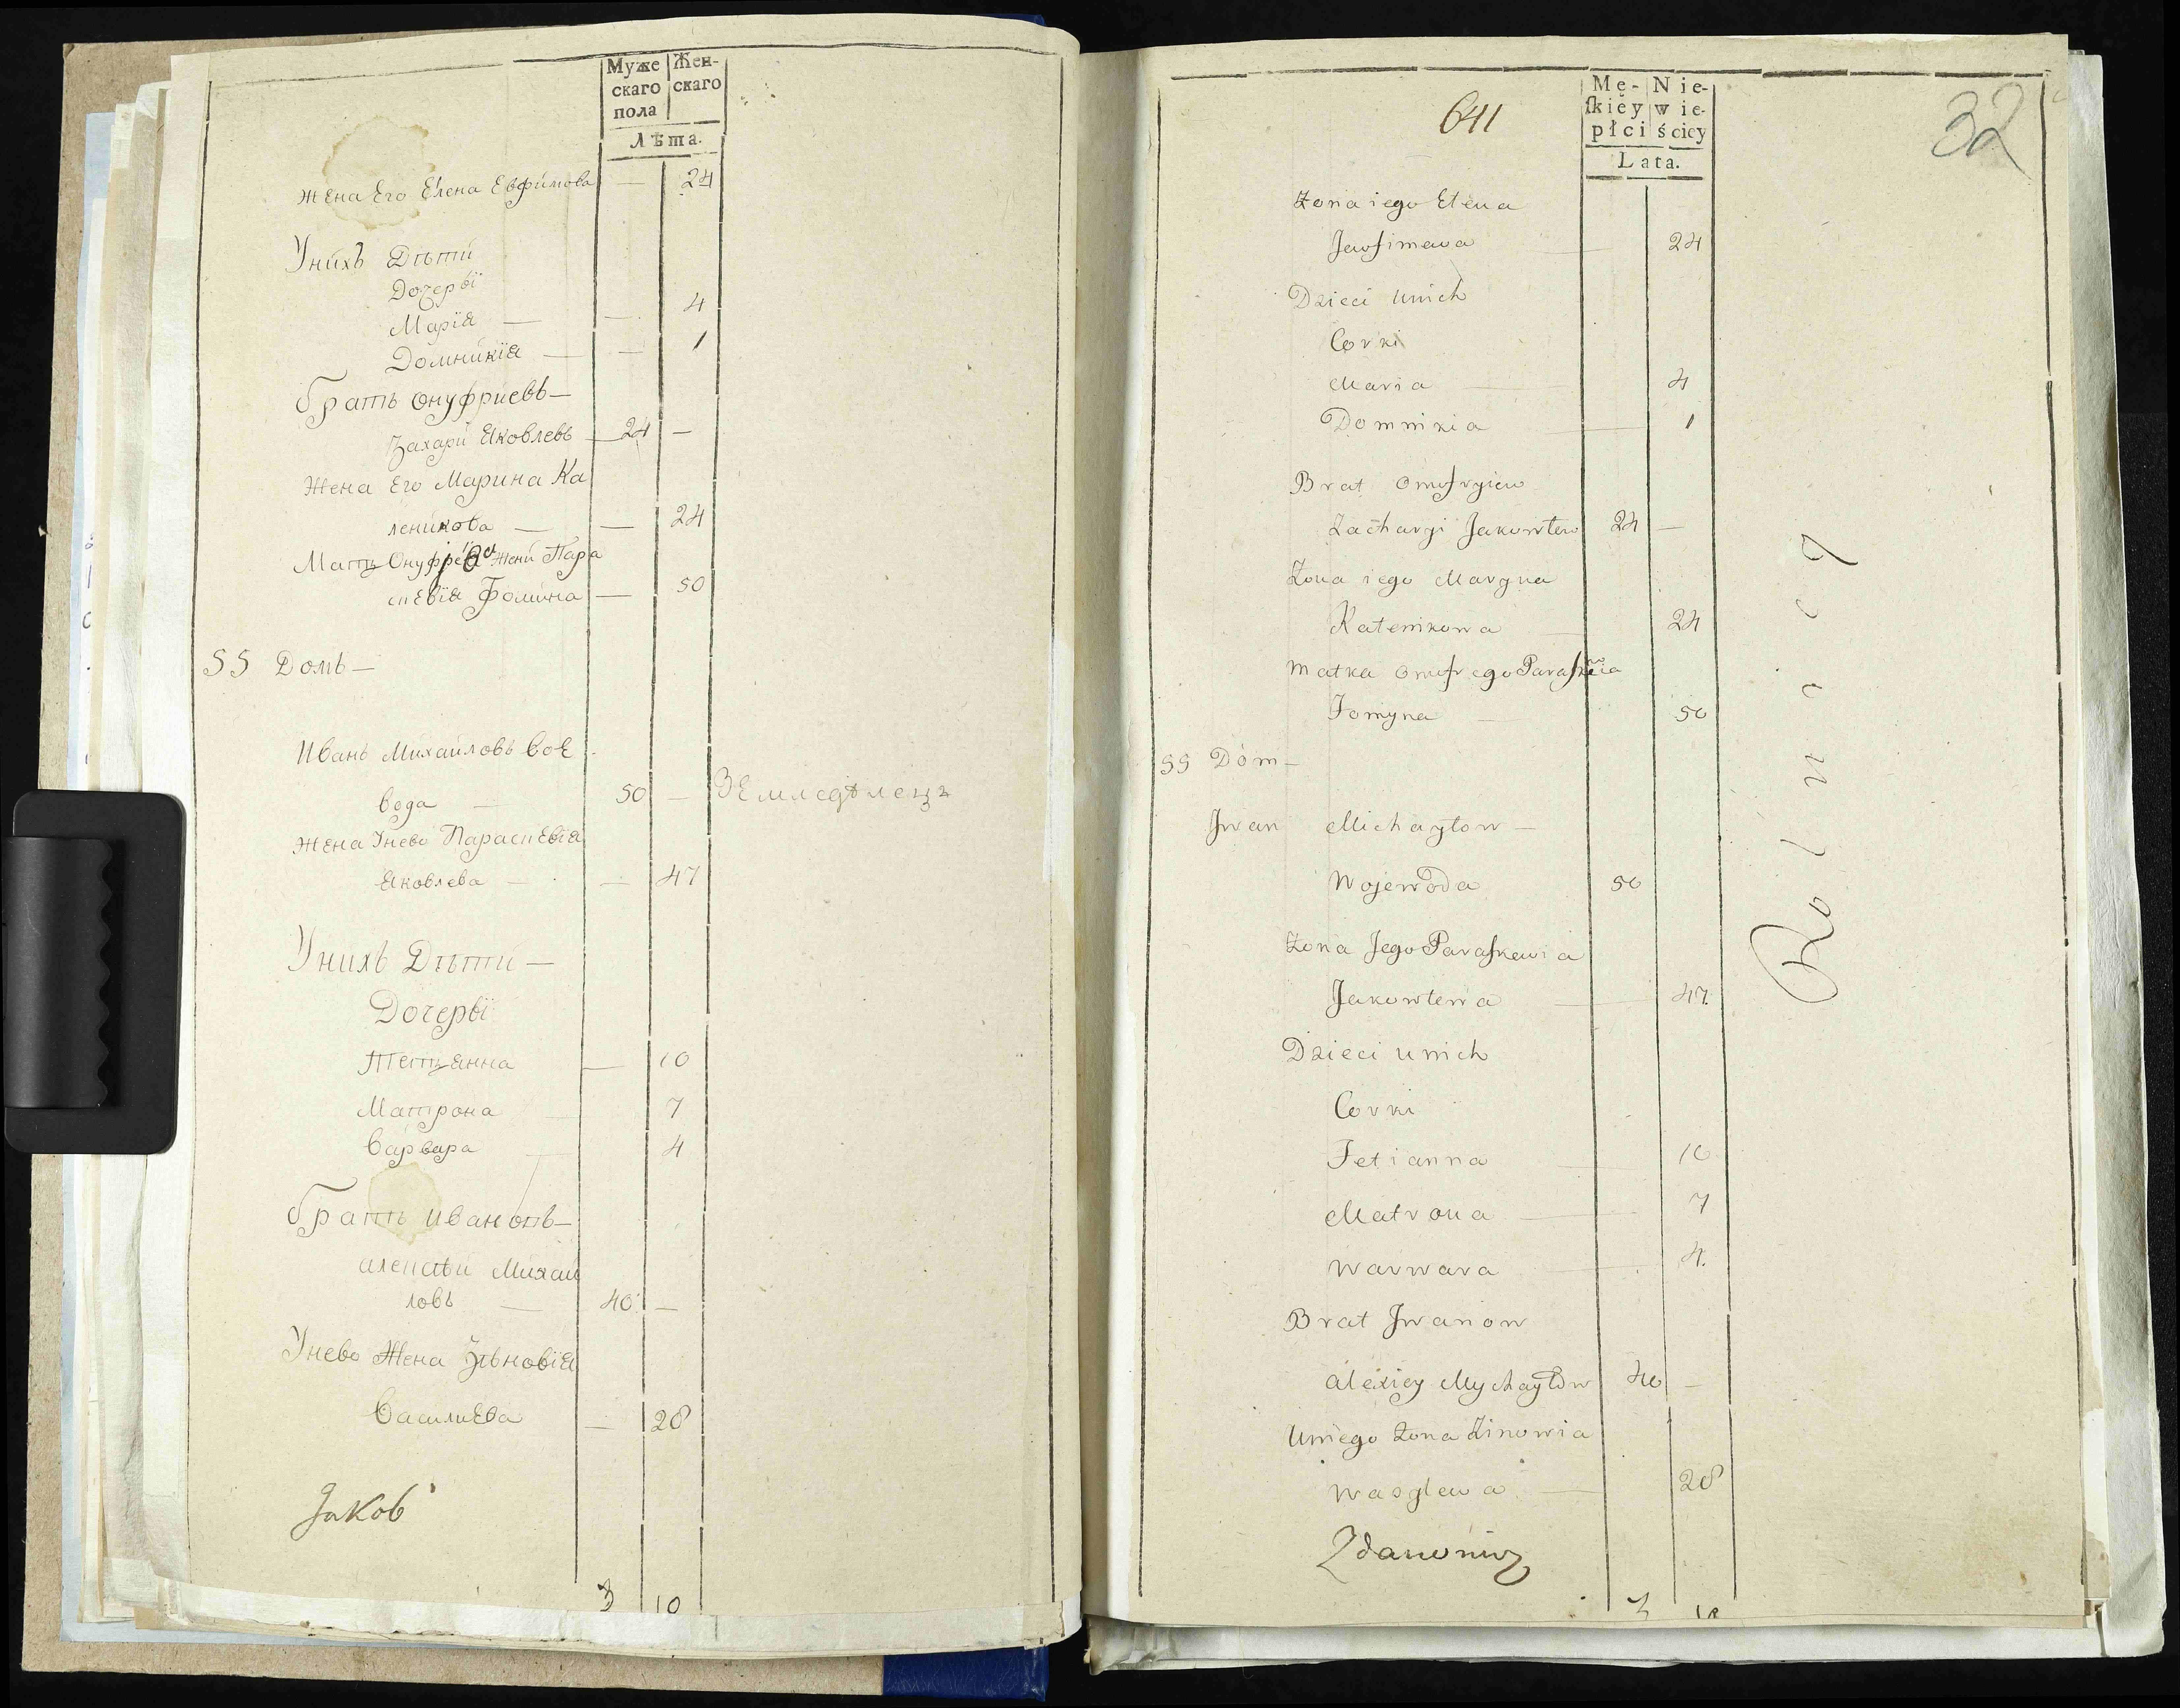 Муже
скаго
пола
Жен-
скаго
Лѣта.
жена Его Елена Евфимова — 24
Унихъ Дѣти
Дочерѣï
Марïя — — 4
Домникïя — — 1
братъ Онуфриевъ —
Захари Яковлевъ — 24 —
жена Его Марина Ка
леникова — — 24
Мать Онуфрея жени Пара
скевïя Фомина — 50
55 Домъ —
Иванъ Михайловъ вое
вода — 50 — Землѣдѣлецъ
жена Унево Параскевïя
Яковлева — — 47
Унихъ Дѣти —
Дочерѣï
Тетьянна — 10
Матрона — 7
Варвара — 4
братъ Ивановъ —
алексѣй Михай
ловъ — 40 —
Унево Жена Зѣновïя
Василиева — 28
Jakob
3 10
641
32
Mę-
skiéy
płci
Nie-
wie-
ściey
Lata.
Żona iego Elena
Jawfimowa — 24
Dzieci unich
Corki
Maria — 4
Domnikia — 1
Brat Onofryiew
Zacharyi Jakowlew 24 —
Żona iego Maryna
Kalenikowa — 24
Matka Onofrego Paraskewia
Fomyna — 50
55 Dóm —
Jwan Michayłow —
Wojewoda 50
Żona Jego Paraskewia
Jakowlewa — 47.
Dzieci unich
Corki
Tetianna — 10
Matrona — 7
Warwara — 4.
Brat Jwanow
Alexiey Mychayłow 40 —
Uniego Żona Zinowia
Wasylewa — 28
Zdanowicz
3 10
Rolnicy